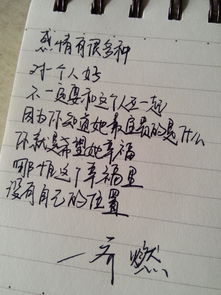 感情有很多种
对一个人好
不一定要和这个人在一起
因为你知道她最重要的是什么
你就是希望她幸福
哪怕这个幸福里
没有自己的位置